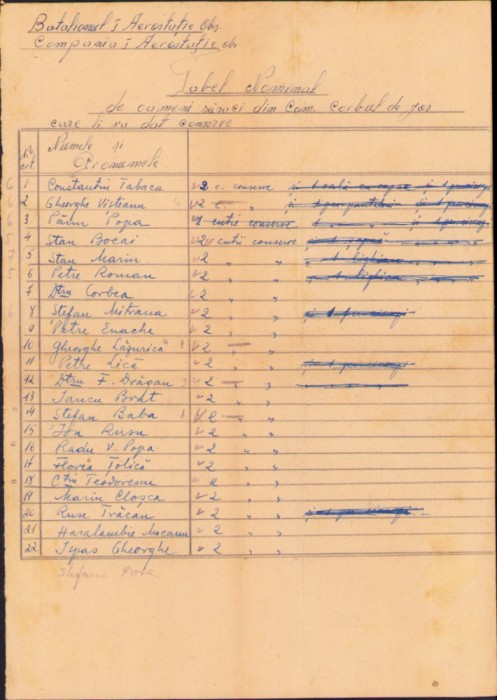 Batalionul I Aerostație Obs.
Compania I Aerostație obs
Tabel Nominal
de oameni săraci din Com. Corbul de jos
care li s'a dat conserve
Nr. crt.
Numele și
Pronumele
1 Constantin Tabacu 2 c. conserve
2 Gheorghe Visteanu 2 c. "
3 Păun Popa 1 cutii conserve
4 Stan Bocai 2 cutii conserve
5 Stan Marin 2 " "
6 Petre Roman 2 " "
7 Dtru Corbea 2 " "
8 Stefan Mitrana 2 " "
9 Petre Enache 2 " "
10 Gheorghe Lăzurică 2 " "
11 Petre Lică 2 " "
12 Dtru F. Drăgan 2 " "
13 Iancu Brat 2 " "
14 Stefan Baba 2 " "
15 Ion Rusu 2 " "
16 Radu V. Popa 2 " "
17 Florea Țolică 2 " "
18 Ctin Teodorescu 2 " "
19 Marin Closca 2 " "
20 Ruse Trăcan 2 " "
21 Haralambie 2 " "
22 Gheorghe 2 " "